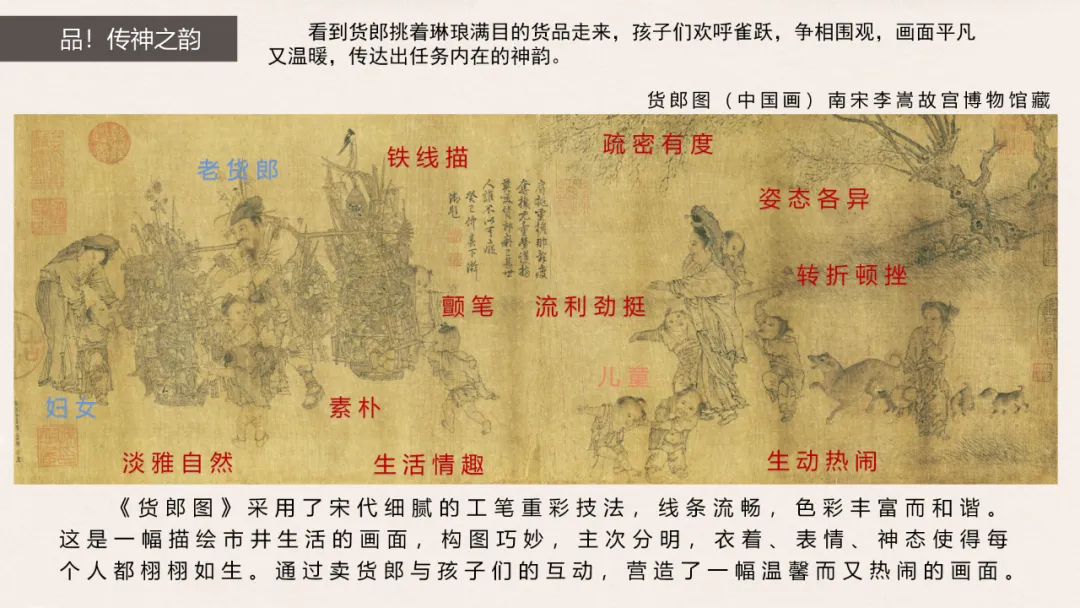 品！传神之韵
看到货郎挑着琳琅满目的货品走来，孩子们欢呼雀跃，争相围观，画面平凡
又温暖，传达出任务内在的神韵。
货郎图（中国画）南宋李嵩故宫博物馆藏
老货郎
铁线描
疏密有度
姿态各异
转折顿挫
颤笔
流利劲挺
儿童
妇女
素朴
淡雅自然
生活情趣
生动热闹
《货郎图》采用了宋代细腻的工笔重彩技法，线条流畅，色彩丰富而和谐。
这是一幅描绘市井生活的画面，构图巧妙，主次分明，衣着、表情、神态使得每
个人都栩栩如生。通过卖货郎与孩子们的互动，营造了一幅温馨而又热闹的画面。